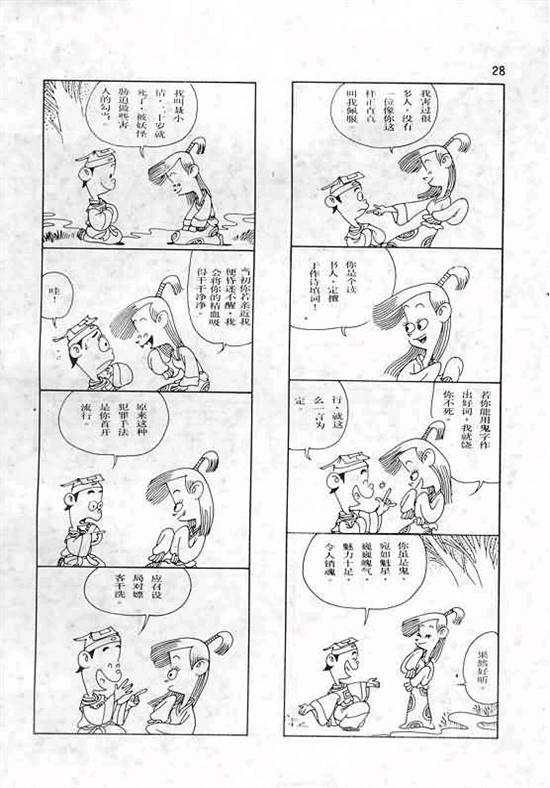 28
我叫聂小
倩，二十岁就
死了，被妖怪
胁迫做些害
人的勾当。
当初你若亲近我
便昏迷不醒，我
会将你的精血吸
得干干净净。
哇！
原来这种
犯罪手法
是你首开
流行。
应召设
局对嫖
客干洗。
我害过很
多人，没有
一位像你这
样正直真
叫我佩服
你是个读
书人，定擅
于作诗填词！
若你能用鬼字作
出好词，我就饶
你不死。
行，就这
么一言为
定。
你虽是鬼，
宛如魁星，
巍巍魄气，
魅力十足，
令人销魂。
果然好听。